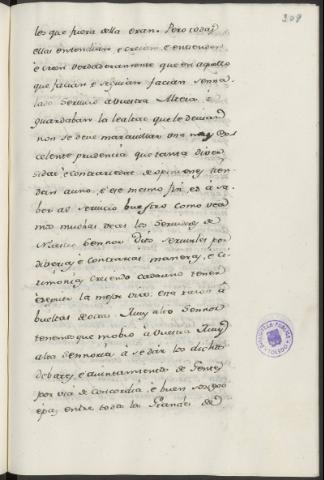 208
les que fuera della eran. Pero todas
ellas entendian e creian e entienden
e creen verdaderamente que en aquello
que facian e seguian facian señna
lado Servicio a Vuestra Alteza e
guardaban la lealtad que le devian
non se deve maravillar una muy Ex
celente prudencia que tanta diver
sidad e contrariedad de opiniones tien
dan a uno, e ese mesmo fin es a sa
ber al servicio vuestro como vea
mos muchas veces los Servidores de
Nuestro Sennor Dios servirles por
diversas e contrarias maneras, e ce
rimonias creiendo cada uno tener
e seguir la mejor via. Esta razon a
bueltas de otras Muy alto Sennor
tenemos que mobio a Vuestra Muy
alta Sennoria a se dar los dichos
debates e aiuntamientos de Gentes
por via de concordia e buen sosiego
e paz entre todos los Grandes de
BIBLIOTECA PUBLICA
TOLEDO